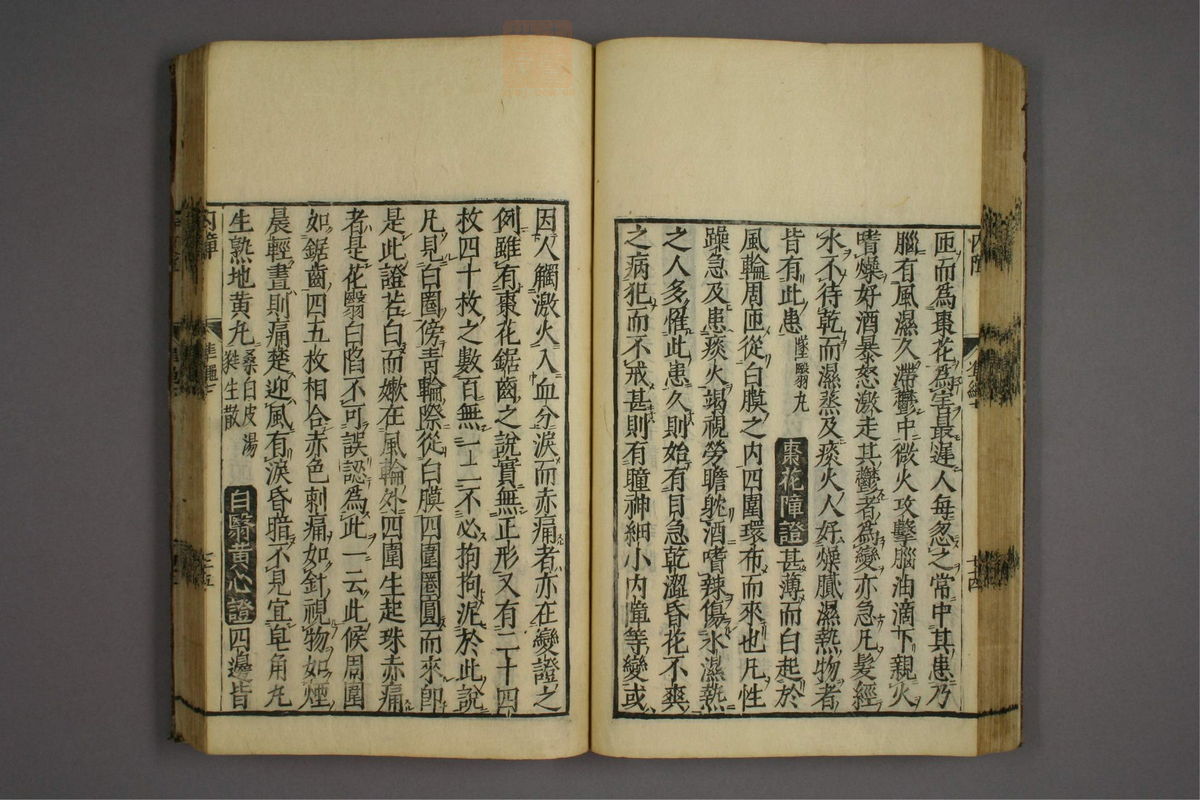 匝而為棗花為害最遲人每忽之常中其患乃
腦有風濕久滯鬱中微火攻擊腦油滴下親火
嗜燥好酒暴怒激走其鬱者為變亦急凡髮經
水不待乾而濕蒸及痰火人好燥膩濕熱物者
皆有此患 墜翳丸 棗花障證 甚薄而白起於
風輪周匝從白膜之内四圍環布而來也凡性
躁急及患痰火竭視勞瞻躭酒嗜辣傷水濕熱
之人多罹此患久則始有目急乾澀昏花不爽
之病犯而不戒甚則有瞳神細小内障等變或
因人觸激火入血分淚而赤痛者亦在變證之
例雖有棗花鋸齒之說實無正形又有二十四
枚四十枚之數百無一二不必拘拘泥於此說
凡見白圈傍青輪際從白膜四圍圈圓而來即
是此證若白而嫩在風輪外四圍生起珠赤痛
者是花翳白陷不可誤認為此一云此候周圍
如鋸齒四五枚相合赤色刺痛如針視物如煙
晨輕晝則痛楚迎風有淚昏暗不見宜皂角丸
生熟地黄丸 桑白皮湯 㹠生散 白翳黄心證 四邊皆
内障